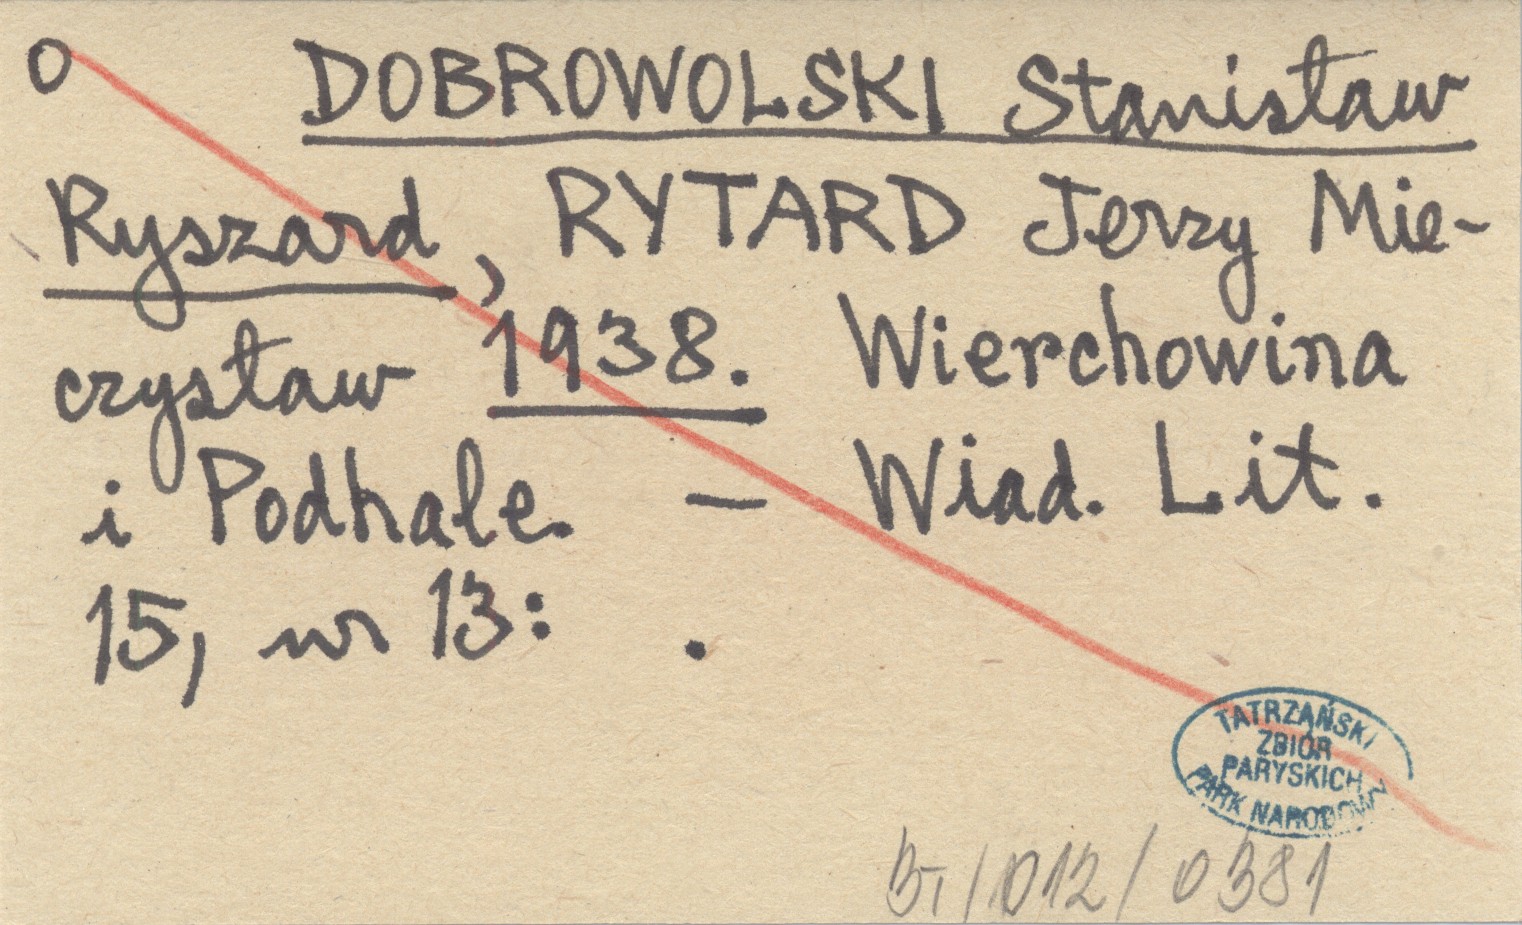 o DOBROWOLSKI Stanisław
Ryszard, RYTARD Jerzy Mie-
czysław 1938. Wierchowina
i Podhale. — Wiad. Lit.
15, nr 13: .
TATRZAŃSKI
ZBIÓR
PARYSKICH
PARK NARODOWY
BT/012/0381